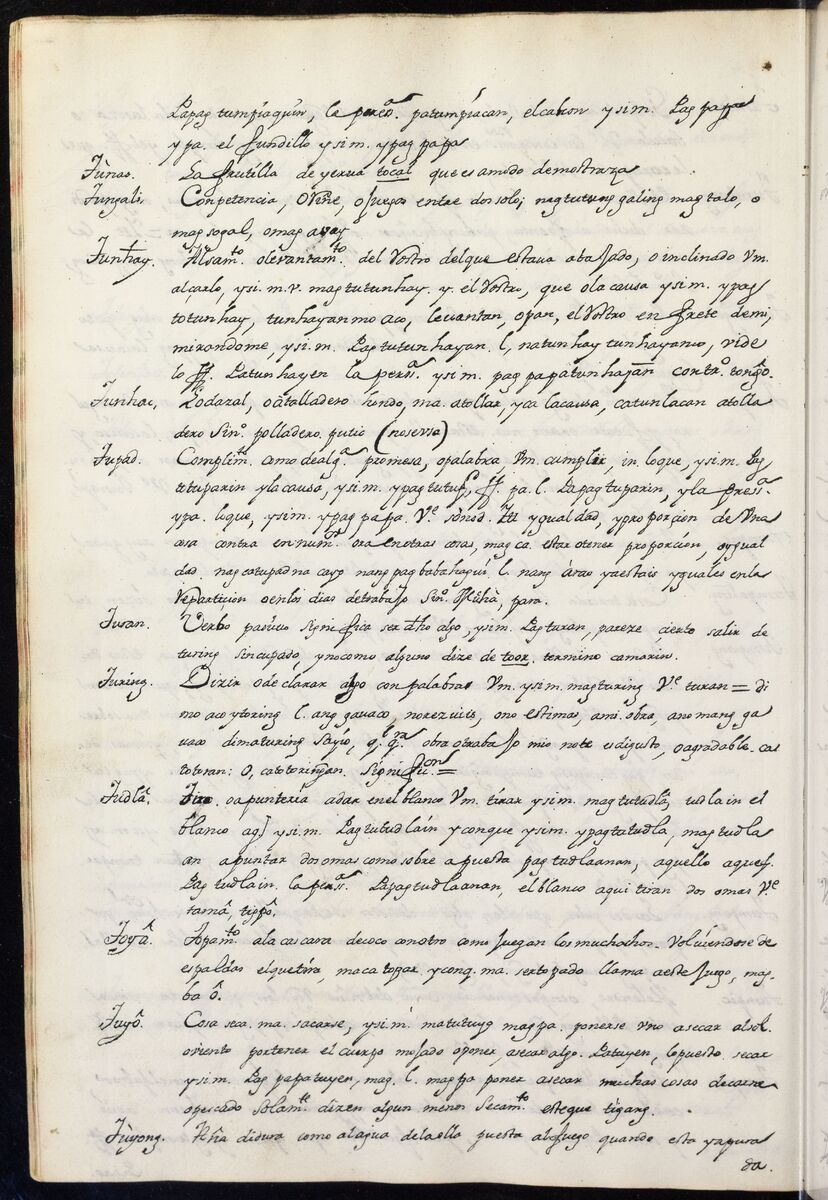 Papag tumpiaquin, la perso.ª patumpiacan, el calson y sim. Pag papa
ypa. el fundillo y sim. ypag papa
Tùnas. La frutilla de yerua tocal que es amodo de mostraza
Tungali. Conpetencia, o riñe, o juegos entre dos solo; nag tutung galing mag talo, o
mag sogal, o mag avay
Tunhay. Alsam.to o levantam.to del Rostro del que estava abajado, o inclinado Vm.
alçarlo, y si. m. v. mag tutunhay. y. el Rostro, que o la causa y sim. ypag
totunhay, tunhayan mo aco, levantan, o pan, el Rostro en frẽte de mi,
mirandome, y si. m. Pag tutunhayan. l, natunhay tunhayanco, vide
lo ff. Patunhayen la perss.ª y sim. pag papatunhayan contr.º tongo.
Tunhac. Lodazal, o atalladero hondo, ma. atollar, y ca la causa, catunlacan atolla
dero Sin.º polladero. putic (no serve)
Tupad. Complim.to como de alg.ª promesa, o palabra, Vm. cumplir, in. loque, y sim. Pag
tutuparin y la causa, y si. m. ypag tutup, ff. pa. l. Papag tuparin, y la press.ª
ypa. loque, y sim. ypag papa. V.e sonod. ygualdad, y proporcion de vna
cosa contra en num.º ora en otras cosas, mag ca. estar o tener proporcion, o ygual
dad. nag catupad na cayo nang pag babahagui. l. nang árao ya estais yguales en la
reparticion o en los dias de trabajo Sin.º para.
Turan. Verbo pasiuo significa ser dicho algo, y sim. Pag turan, pareze cierto salir de
turing sincupado, y no como alguno dize de toor. termino camarin.
Turing. Dizir o declarar algo con palabras Vm. y sim. mag turing V.e turan = di
mo aco ytoring l. ang gavaco, no rezivis, o no estimas, a mi. obra, ano mang ga
vaco di maturing sayo, q.l q.ra obra o trabajo mio not es digusto, o agradable. cas
totoran: o, catotoringan. Significaon =
Tudlâ. Tiro o apunteria a dar en el blanco Vm. tirar y sim. mag tutudlâ, tudlain el
blanco ag] y si. m. Pag tutudlain y con que y sim. ypag tatudla, mag tudla
an apuntar dos o mas como sobre apuesta pag tudlaanan, aquello aquey.
Pag tudlain. la perss.ª Papag tudlaanan, el blanco aqui tiran dos o mas V.e
tamâ, tippô.
Toyâ. Topam.to a la cascara de coco con otro como juegan los muchachos. Volviendose de
espaldas el que tira, maca topar, y con q. ma. ser topado llama a este juego, mag-
bâ ô.
Tuyô. Cosa seca. ma. sacarse, y si. m. matutuyg mag pa. ponerse vno a secar al sol.
o viento por tener el cuerpo mojado o poner, a secar algo. Patuyen, lo puesto. secar
y si m. Pag papatuyen, mag. l. mag pa poner a secar muchas cosas de carne
o pescado Solam.te dizen algun menos Secam.to este que tigang.
Tùyong. Nña didura como al agua de la olla puesta al fuego quando esta ya pura
da.